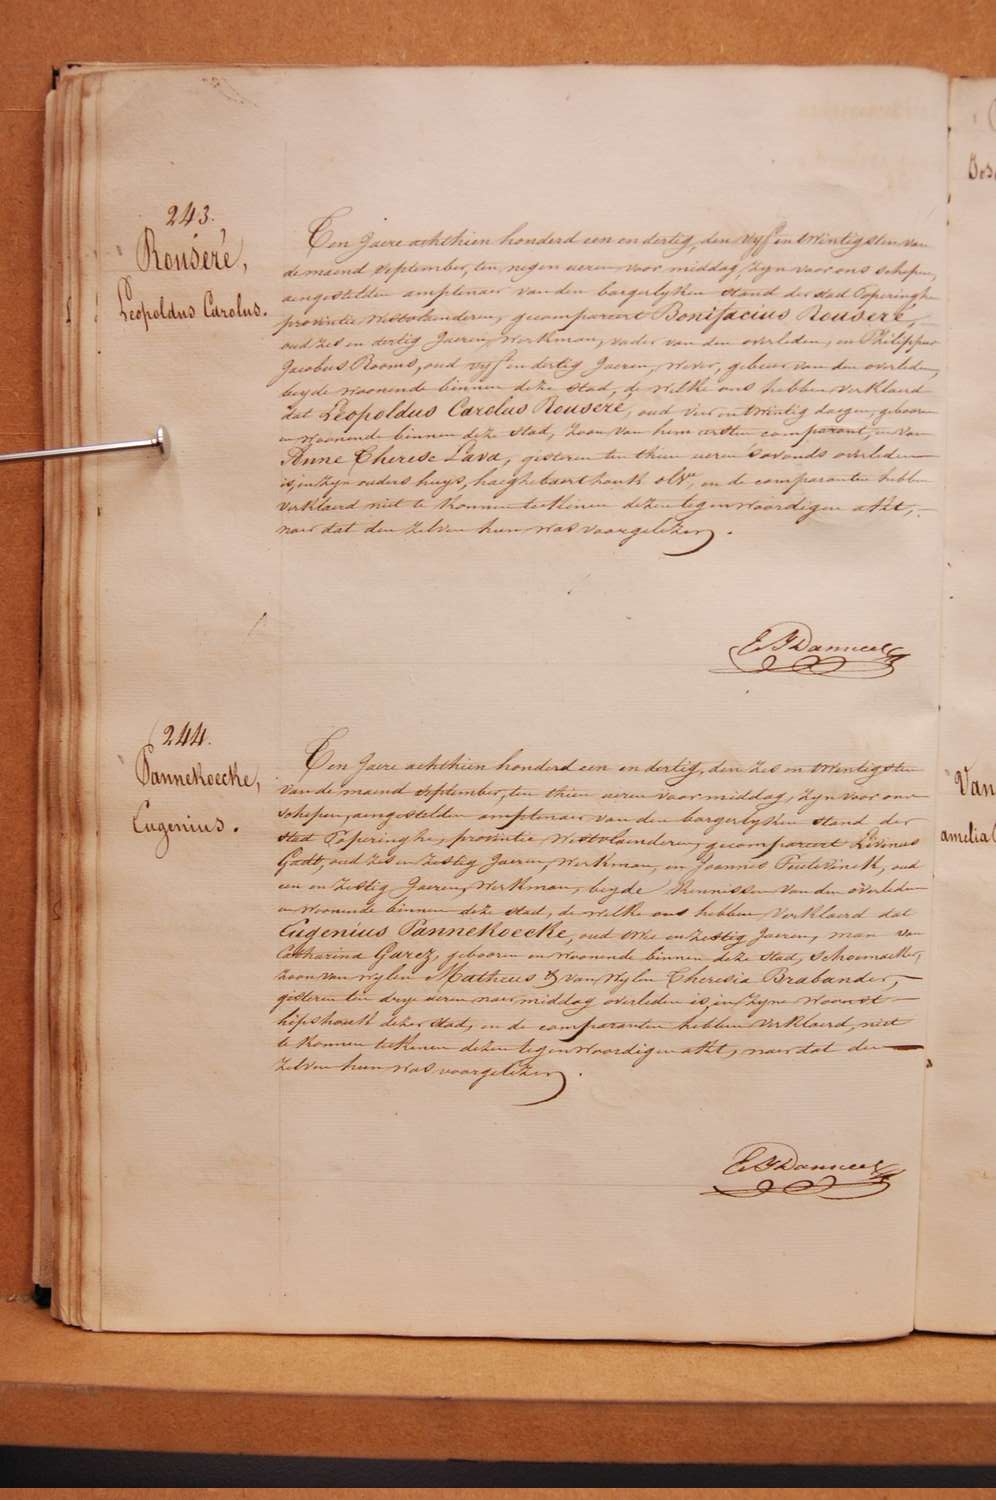 243.
Rouseré,
Leopoldus Carolus.
Ten Jaere achthien honderd een en dertig, den vyf en twintigsten van
de maend september, ten negen ueren voor middag, zyn voor ons schepen,
aengestelden amptenaer van den borgerlyken stand der stad Poperinghe
provintie Westvlaenderen, gecompareert Bonifacius Rouseré,
oud zes en dertig Jaeren, Werkman, vader van den overleden, en Philippus
Jacobus Rooms, oud vyf en dertig Jaeren, Wever, gebuer van den overleden,
beyde woonende binnen deze stad, de welke ons hebben verklaerd
dat Leopoldus Carolus Rouseré, oud vier en twintig daegen, gebooren
en woonende binnen deze stad, zoon van hem eersten comparant, en van
Anne Therese Lava, gisteren ten thien ueren s'avonds overleden
is, in zyn ouders huys, haeghebaert houk, en de comparanten hebben
verklaerd niet te konnen teekenen dezen tegenwoordigen akt,
naer dat den zelven hun was voorgelezen.
E J Danneel
244.
Pannekoecke,
Eugenius.
Ten Jaere achthien honderd een en dertig, den zes en twintigsten
van de maend september, ten thien ueren voor middag, zyn voor ons
schepen, aengestelden amptenaer van den borgerlyken stand der
stad Poperinghe, provintie Westvlaenderen, gecompareert Livinus
Gadt, oud zes en zestig Jaeren, Werkman, en Joannes Peutevinck, oud
een en zestig Jaeren, Werkman, beyde kennissen van den overleden
en woonende binnen deze stad, de welke ons hebben verklaerd dat
Eugenius Pannekoecke, oud twee en zestig Jaeren, man van
Catharina Garez, gebooren en woonende binnen deze stad, schoemaeker,
zoon van wylen Matheus & van wylen Theresia Brabander,
gisteren ten drye ueren naer middag overleden is, in zyne woonst
hipshouk dezer stad, en de comparanten hebben verklaerd, niet
te konnen teekenen dezen tegenwoordigen akt, naer dat den
zelven hun was voorgelezen.
E J Danneel
Van
amelia